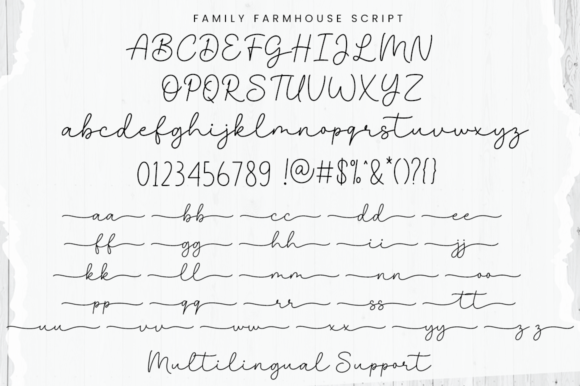 FAMILY FARMHOUSE SCRIPT
ABCDEFGHIJLMN
OPQRSTUVWXYZ
abcdefghijklmnopqrstuvwxyz
0123456789 !@#$%^&*()?{}
aa bb cc dd ee
ff gg hh ii jj
kk ll mm nn oo
pp qq rr ss tt
uu vv ww xx yy zz
Multilingual Support